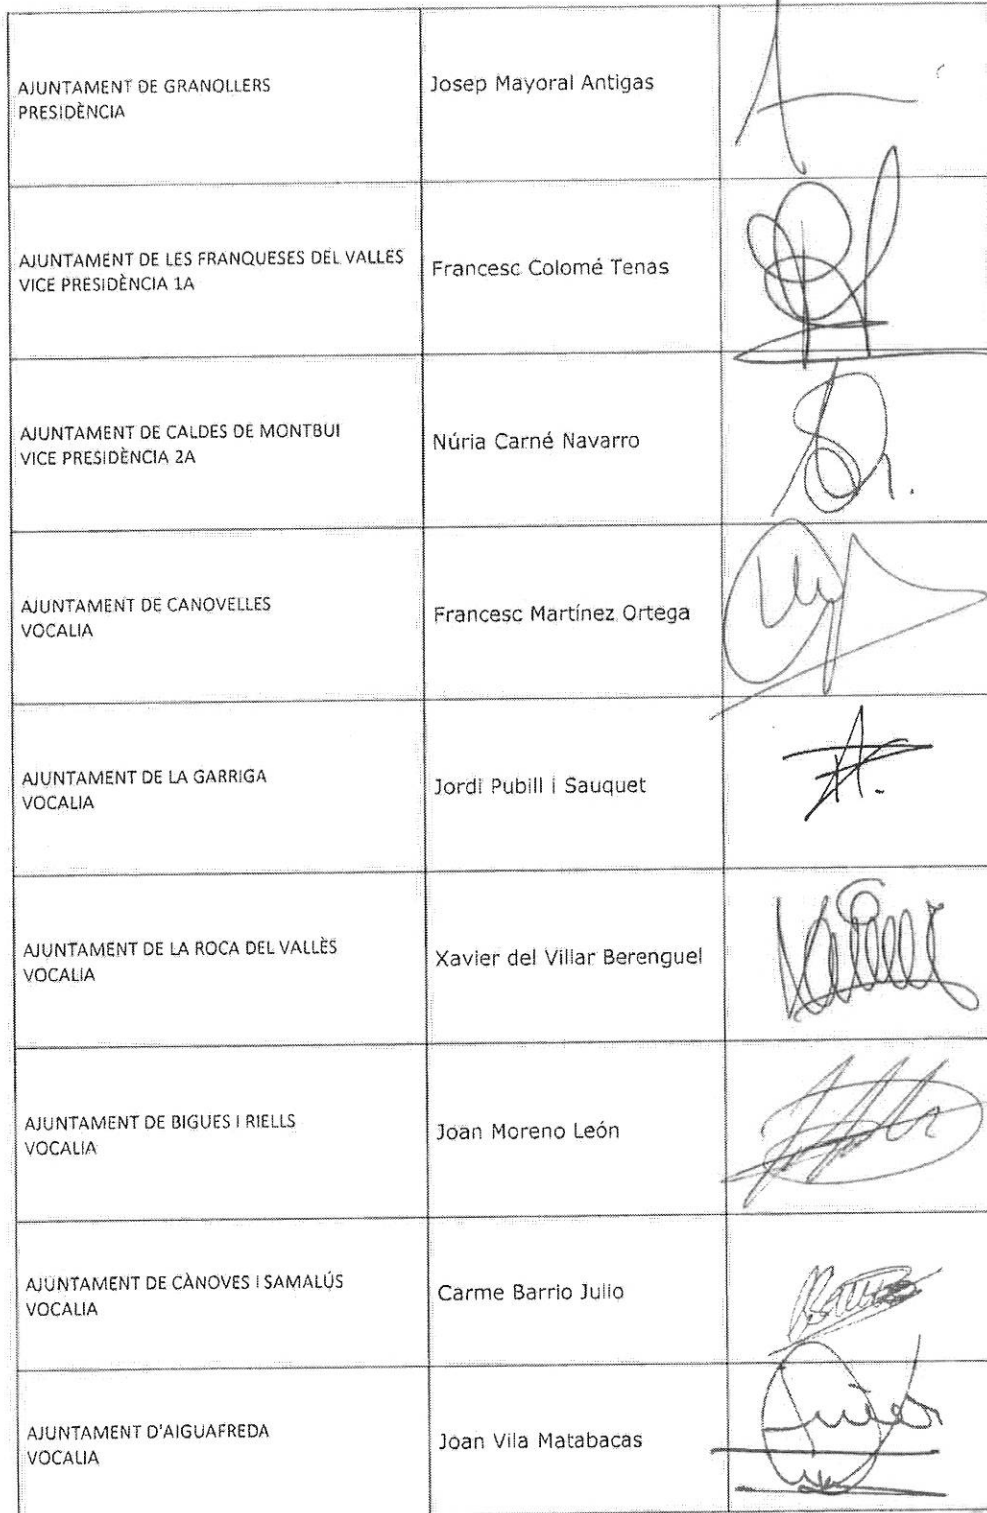 AJUNTAMENT DE GRANOLLERS
PRESIDÈNCIA
Josep Mayoral Antigas
AJUNTAMENT DE LES FRANQUESES DEL VALLES
VICE PRESIDÈNCIA 1A
Francesc Colomé Tenas
AJUNTAMENT DE CALDES DE MONTBUI
VICE PRESIDÈNCIA 2A
Núria Carné Navarro
AJUNTAMENT DE CANOVELLES
VOCALIA
Francesc Martínez Ortega
AJUNTAMENT DE LA GARRIGA
VOCALIA
Jordi Pubill i Sauquet
AJUNTAMENT DE LA ROCA DEL VALLÈS
VOCALIA
Xavier del Villar Berenguel
AJUNTAMENT DE BIGUES I RIELLS
VOCALIA
Joan Moreno León
AJUNTAMENT DE CÀNOVES I SAMALÚS
VOCALIA
Carme Barrio Julio
AJUNTAMENT D'AIGUAFREDA
VOCALIA
Joan Vila Matabacas